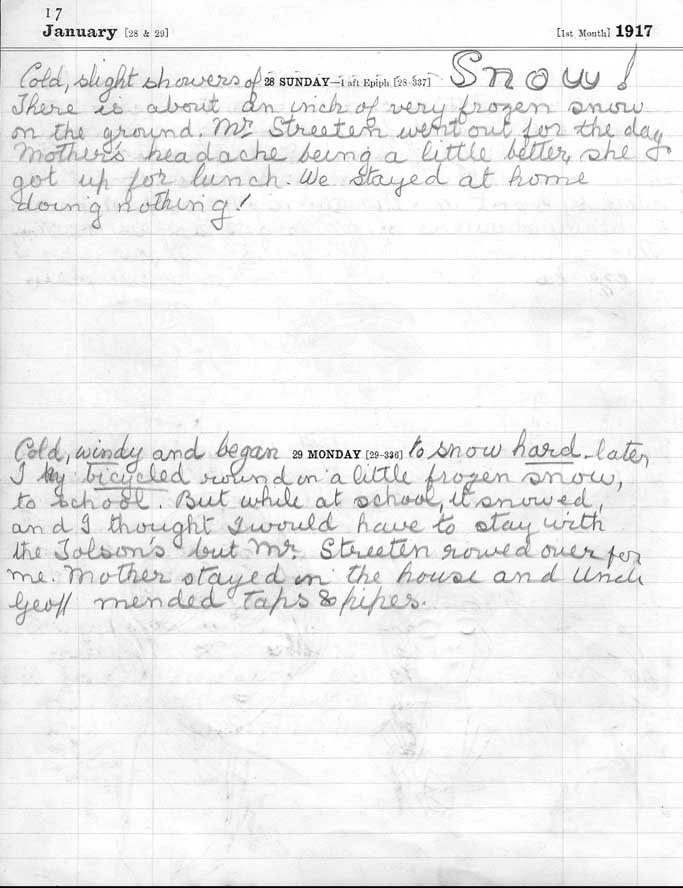 17
January [28 & 29] [1st Month] 1917
Cold, slight showers of 28 SUNDAY—1 aft Epiph [28-337] Snow!
There is about an inch of very frozen snow
on the ground. Mr Streeten went out for the day
Mother's headache being a little better, she
got up for lunch. We stayed at home
doing nothing!
Cold, windy and began 29 MONDAY [29-336] to snow hard later,
I bicycled round on a little frozen snow,
to school. But while at school, it snowed,
and I thought I would have to stay with
the Tolson's but Mr. Streeten rowed over for
me. Mother stayed in the house and Uncle
Geoff mended taps & pipes.